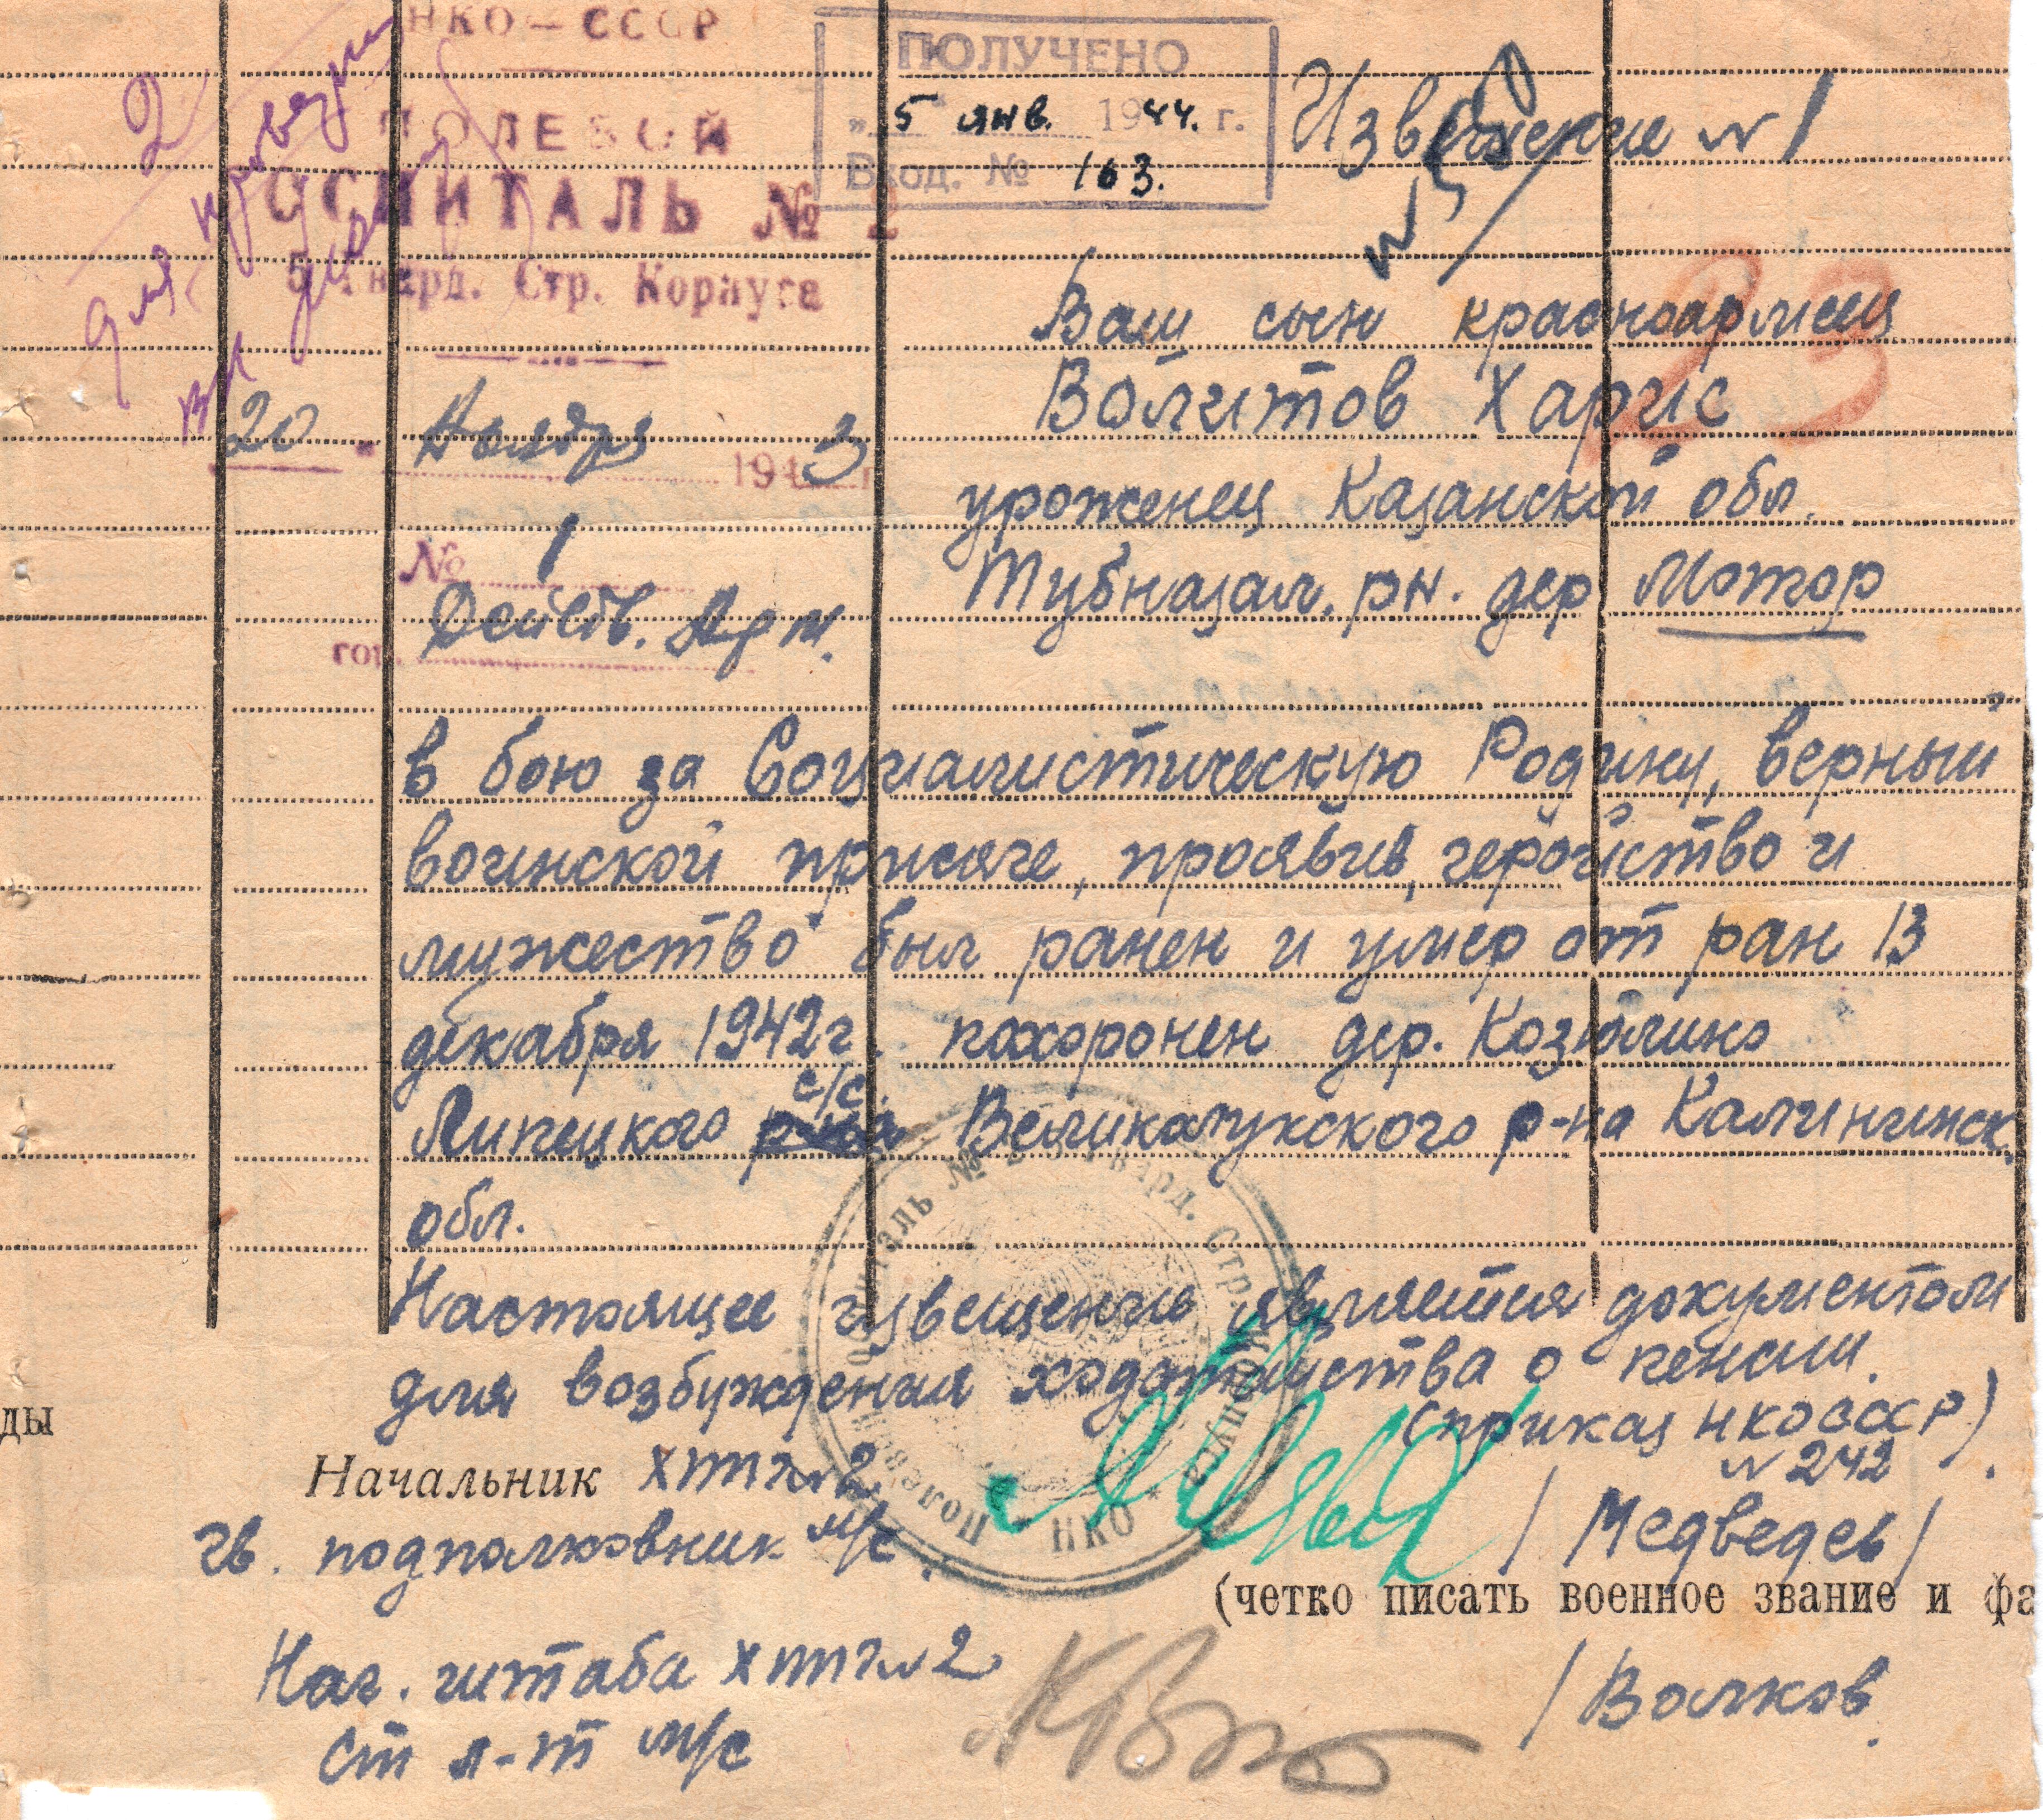 НКО — СССР
ПОЛЕВОЙ
ГОСПИТАЛЬ № 2
5 гвард. Стр. Корпуса
20 Ноября 1943
№ 1
гор. Действ. Арм.
2
для
ПОЛУЧЕНО
" 5 янв. 1944. г.
Вход. № 163.
Извещение № 1
23
Ваш сын красноармеец
Волитов Харис
уроженец Казанской обл.
рн. дер Мотор
в бою за Социалистическую Родину, верный
воинской присяге, проявив, геройство и
мужество был ранен и умер от ран 13
декабря 1942 г. похоронен дер. Козюлино
Липецкого с/с. Великолукского р-на Калининск.
обл.
Настоящее извещение является документом
для возбуждения ходатайства о пенсии.
(приказ НКО СССР)
№ 242
ды
Начальник хппг № 2
гв. подполковник м/с.
/Медведев/
(четко писать военное звание и фа
Нач. штаба хппг № 2
ст л-т м/с
/Волков
Полевой госпиталь № 2 5 гвард. Стр. Корпуса * НКО